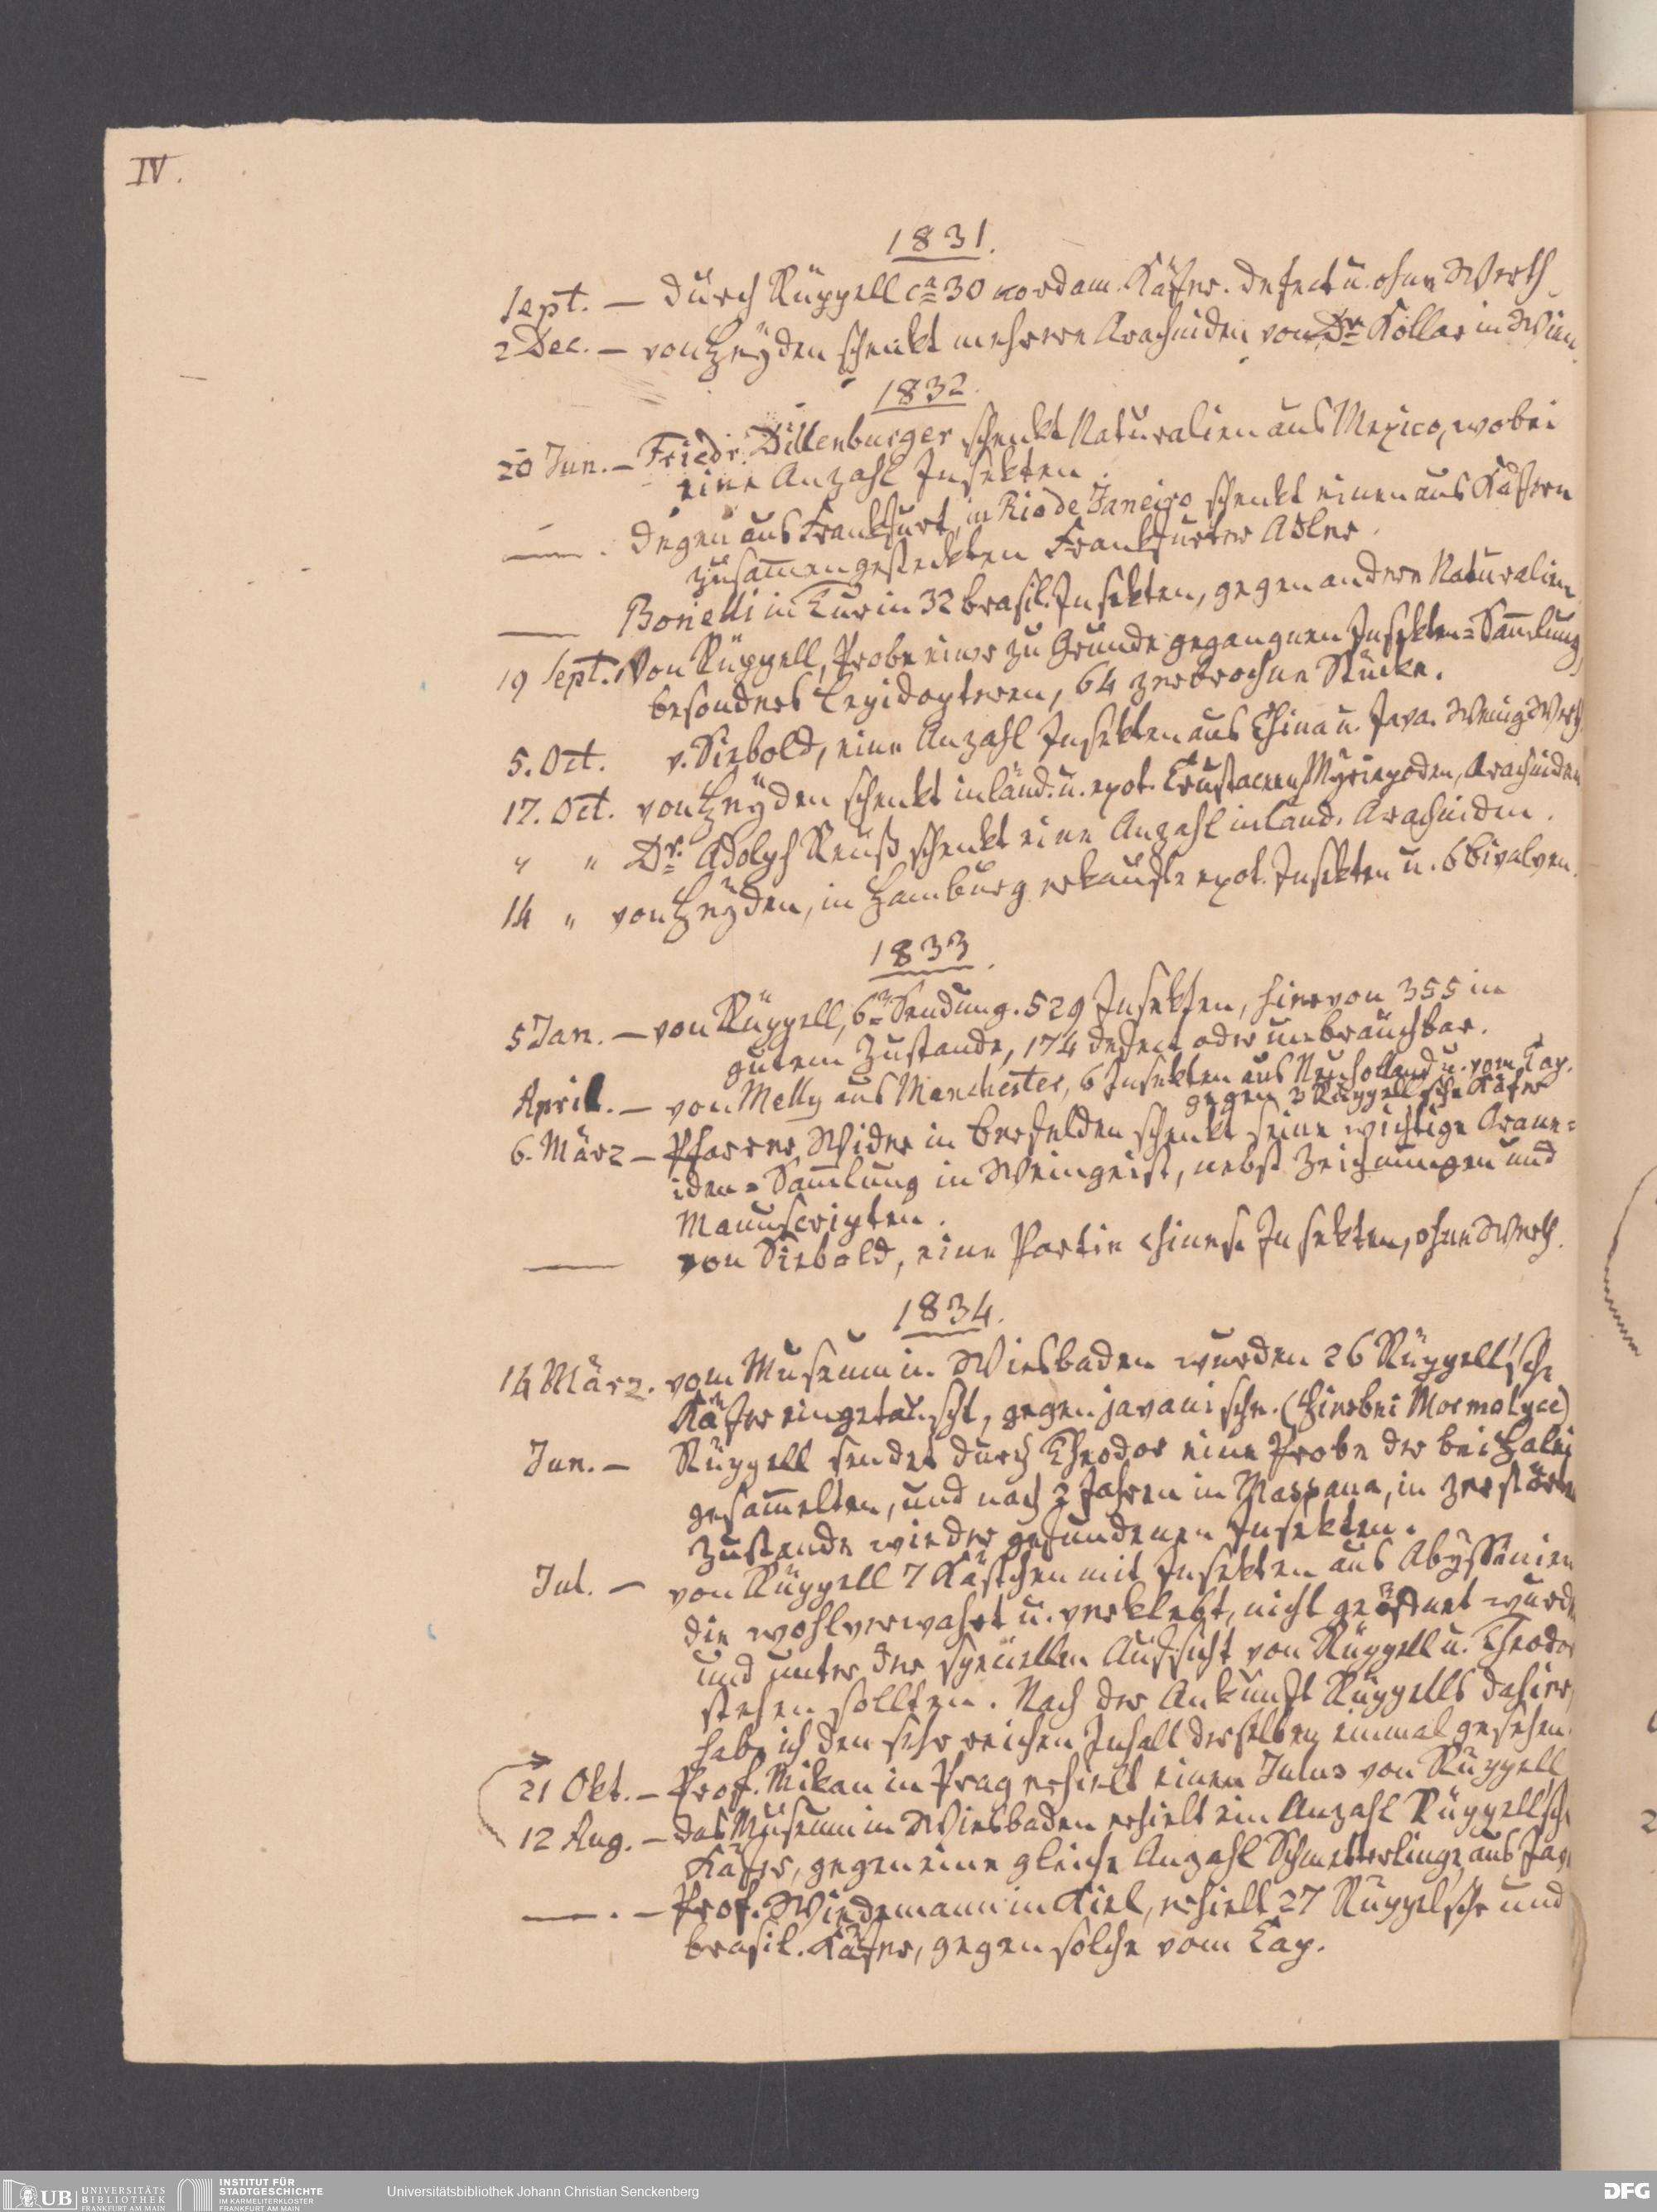 IV.
1831.
Sept. — durch Rüppell ca 30 nordam. Käfer. defect u. ohne Werth.
2 Dec. — von Heÿden schenkt mehrere Arachniden von Dr. Kollar in Wien.
1832.
20 Jun. — Friedr. Dillenburger schenkt Naturalien aus Mexico, wobei
eine Anzahl Insekten.
—— . Degen aus Frankfurt, in Rio de Janeiro schenkt einen aus Käfern
zusam̅engesteckten Frankfurter Adler.
—— Bonelli in Turin 32 brasil. Insekten, gegen andere Naturalien.
19 Sept. Von Rüppell, Probe einer zu Grunde gegangnen Insekten=Sam̅lung,
besonders Lepidopteren, 64 zerbrochne Stücke.
5. Oct. v. Siebold, eine Anzahl Insekten aus China u. Java. Wenig Werth.
17. Oct. von Heÿden schenkt inländ. u. exot. Crustaceen, Myriapoden, Arachniden
„ „ Dr. Adolph Reuß schenkt eine Anzahl inländ. Arachniden.
14 „ von Heÿden, in Hamburg erkaufte exot. Insekten u. 6 bivalven.
1833.
5 Jan. — von Rüppell, 6e Sendung. 529 Insekten, hiervon 355 in
gutem Zustande, 174 defect oder unbrauchbar.
April. — von Melly aus Manchester, 6 Insekten aus Neuholland u. vom Cap.
gegen 3 Rüppell'sche Käfer
6. März — Pfarrer Wider in Beerfelden schenkt seine wichtige Arane=
iden=Sam̅lung in Weingeist, nebst Zeichnungen und
Manuscripten.
—— von Siebold, eine Partie chines. Insekten, ohne Werth.
1834.
14 März. vom Museum in Wiesbaden wurden 26 Rüppell'sche
Käfer eingetauscht, gegen javanische. (Hierbei Mormolyce)
Jun. — Rüppell sendet durch Theodor eine Probe der bei Halei
gesam̅elten, und nach 2 Jahren in Massaua, in zerstörtem
Zustande wieder gefundenen Insekten.
Jul. — von Rüppell 7 Kästchen mit Insekten aus Abyssinien
die wohlverwahrt u. verklebt, nicht geöffnet wurden
und unter der speciellen Aufsicht von Rüppell u. Theodor
stehen sollten. Nach der Ankunft Rüppells dahier,
habe ich den sehr reichen Inhalt derselben einmal gesehen.
21 Okt. — Prof. Mikan in Prag erhielt einen Julus von Rüppell
12 Aug. — das Museum in Wiesbaden erhielt ein Anzahl Rüppell'sche
Käfer, gegen eine gleiche Anzahl Schmetterlinge aus Java
—— . — Prof. Wiedemann in Kiel, erhielt 27 Rüppel'sche und
brasil. Käfer, gegen solche vom Cap.
UB UNIVERSITÄTS BIBLIOTHEK FRANKFURT AM MAIN
INSTITUT FÜR STADTGESCHICHTE IM KARMELITERKLOSTER FRANKFURT AM MAIN
Universitätsbibliothek Johann Christian Senckenberg
DFG